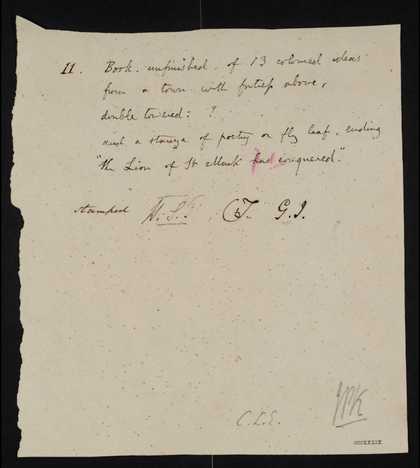 11. Book. unfinished. of 13 coloured ideas
from a town with fortress above,
double towered: ?
and a stanza of poetry on fly leaf. ending
"the Lion of St Mark had conquered."
stamped G.I.
C.L.E.